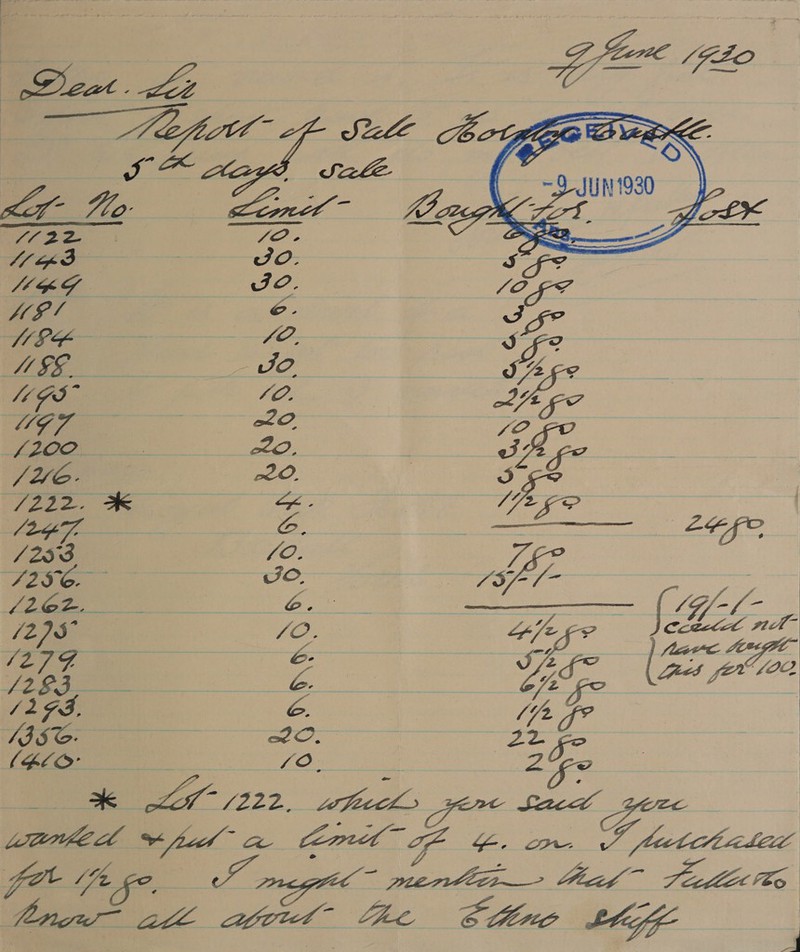 9 June 1930
Dear. Sir
Report of Sale Hornby Castle.
5th days. sale
RECEIVED
-9 JUN 1930
Lot No. Limit Bought for. Lost
1122 10. 6 gs.
1143 30. 5 gs
1149 30. 10 gs
1181 6. 3 gs
1184 10. 5 gs
1188. 30. 5 1/2 gs
1195 10. 2 1/2 gs
1197 20. 10 gs
1200 20. 3 1/2 gs
1216. 20. 5 gs
1222. * 4. 1 1/2 gs
1247. 6. 24 gs.
1253 10. 7 gs
1256. 30. 15/-/-
1262. 6. 19/-/-
could not
have bought
this for 100.
1275 10. 4 1/2 gs
1279. 6. 5 1/2 gs
1283. 6. 6 1/2 gs
1293. 6. 1 1/2 gs
1356. 20. 22 gs
1410. 10. 2 gs
* Lot 1222. which you said you
wanted & put a limit of 4. on. I purchased
for 1 1/2 gs. I might mention that
know all about the Ethno stuff